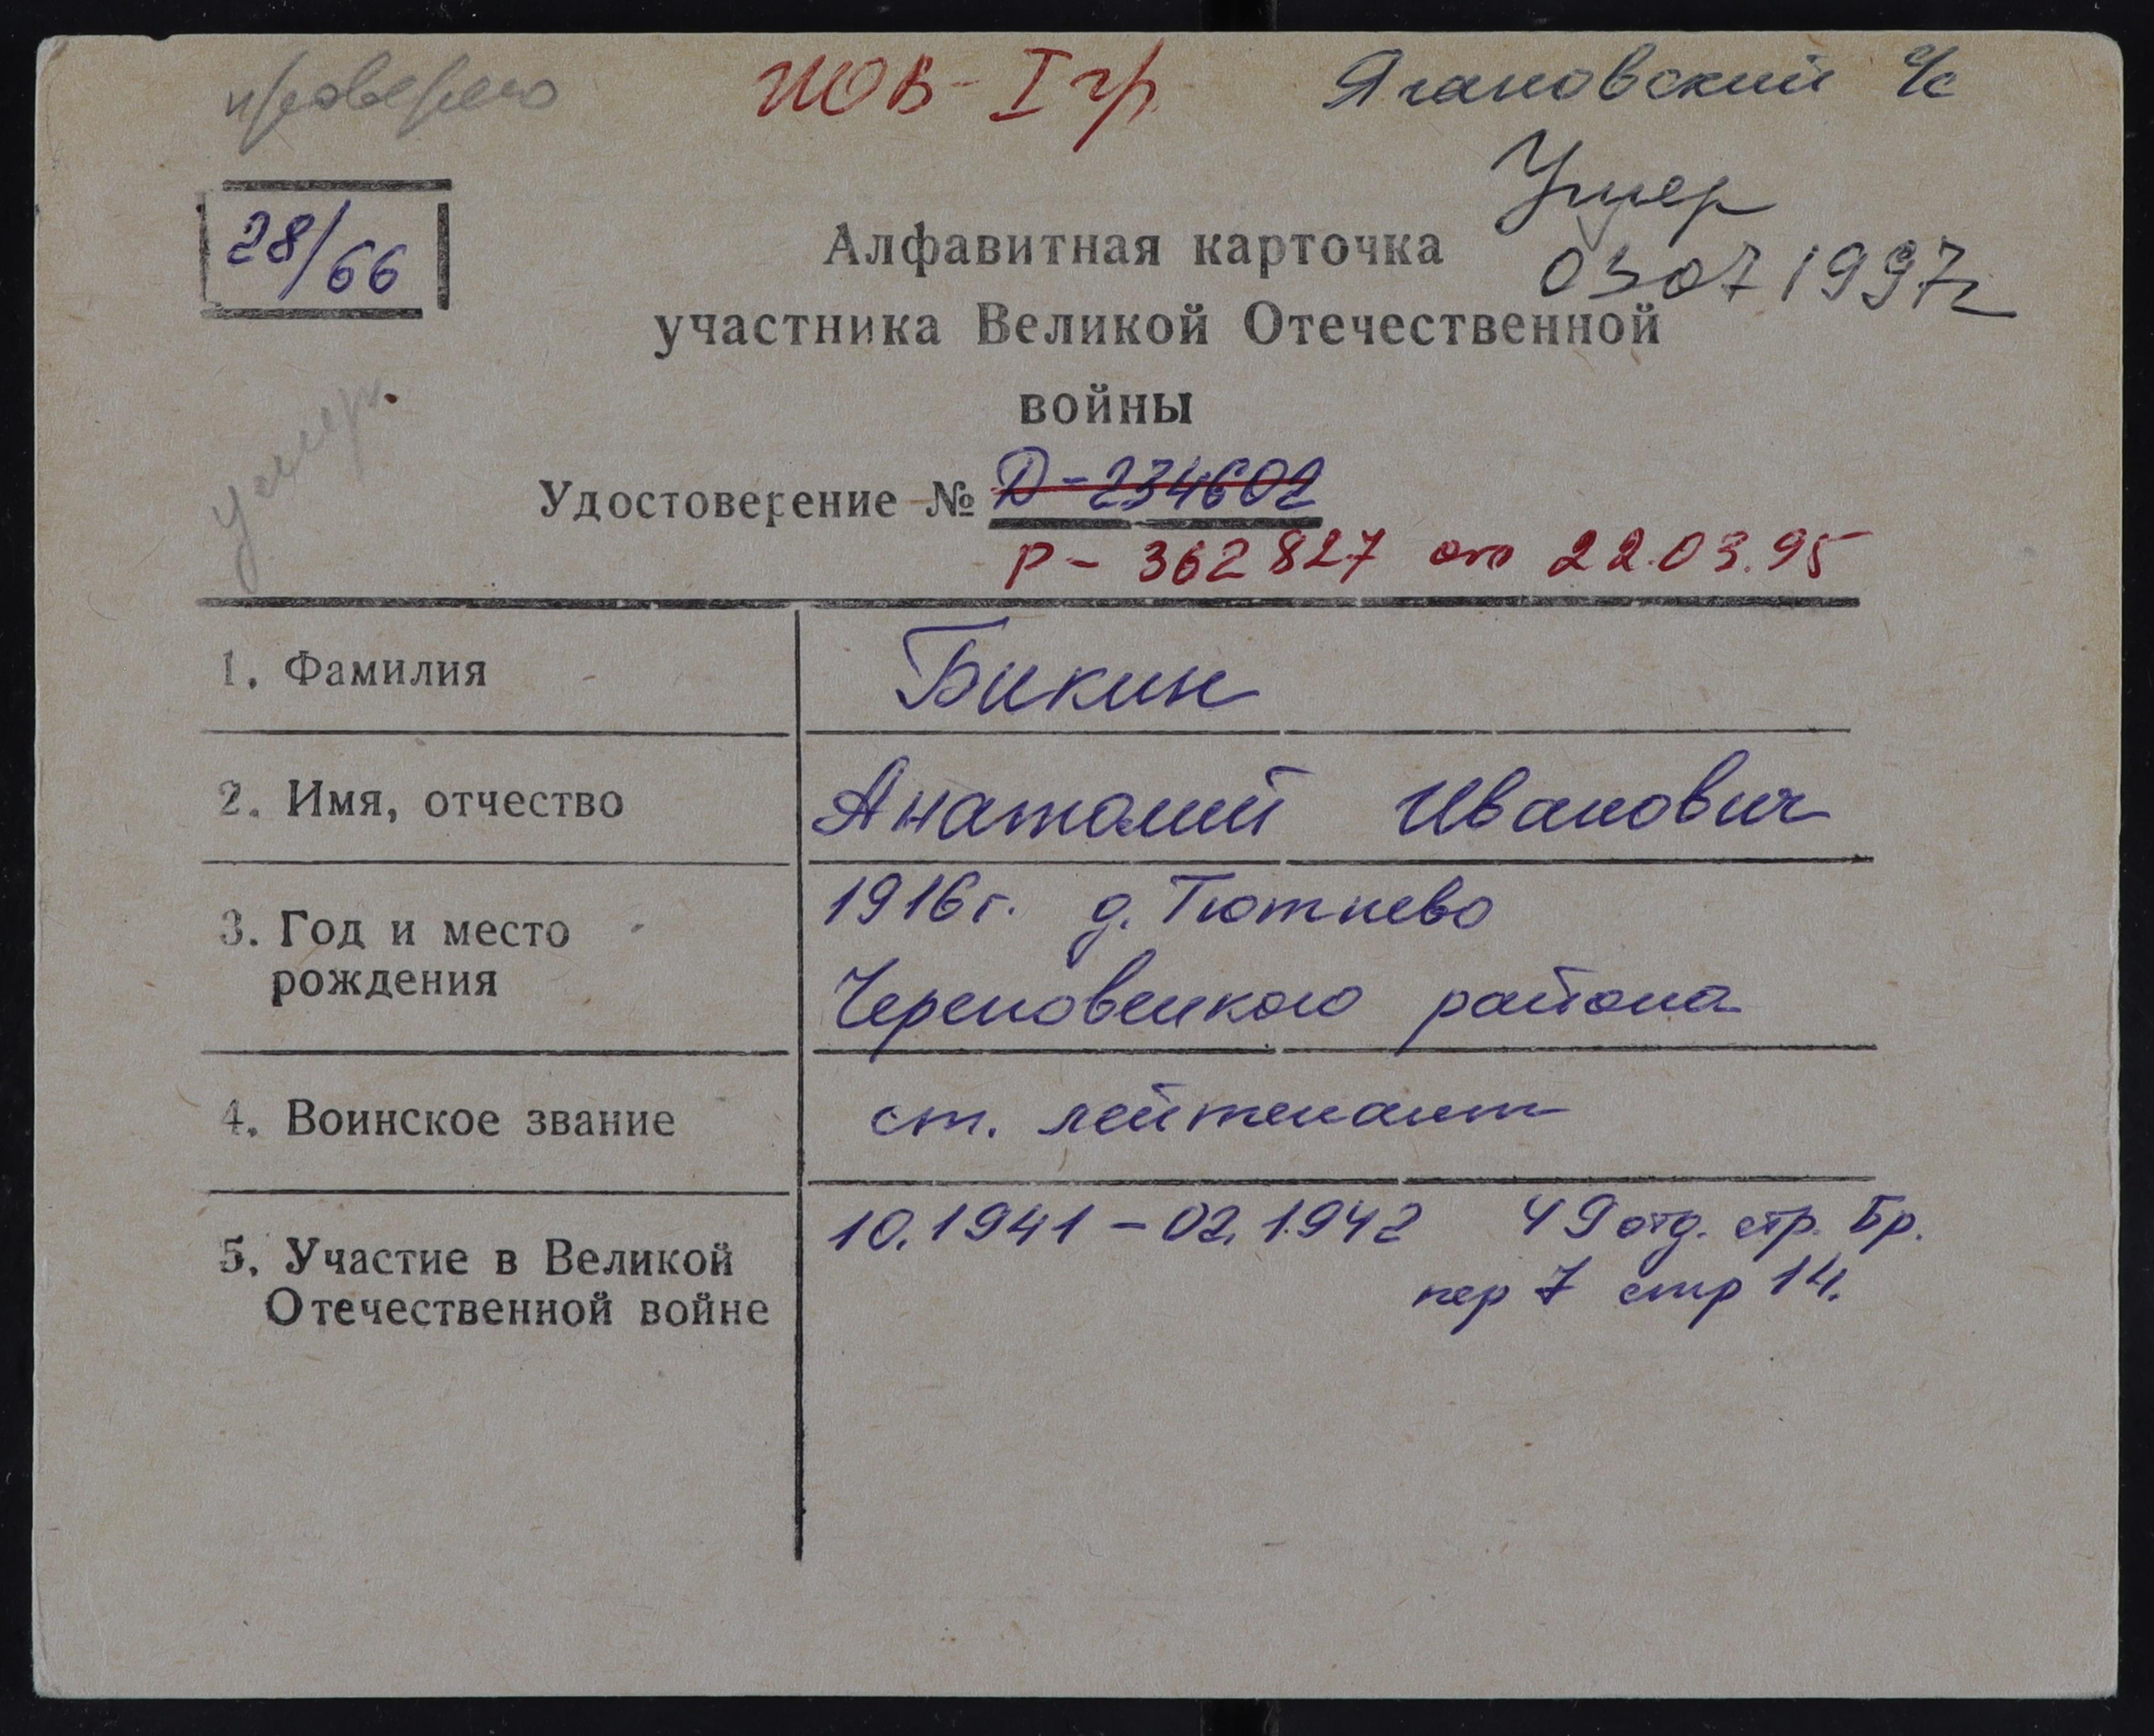 проверено
ИОВ - I гр
Ягановский с/с
Умер
03 07 1997г
28/66
Алфавитная карточка
участника Великой Отечественной
войны
умер.
Удостоверение № Д-234602
Р - 362827 от 22.03.95
1. Фамилия
Бикин
2. Имя, отчество
Анатолий Иванович
3. Год и место
рождения
1916г. д. Тютнево
Череповецкого района
4. Воинское звание
ст. лейтенант
5. Участие в Великой
Отечественной войне
10.1941 - 02.1942 49 отд. стр. Бр.
пер 7 стр 14.